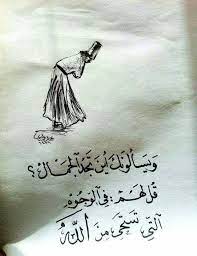 ويسألونك أين تجد الجمال؟
قل لهم: في الوجوه
التي تستحي من الله